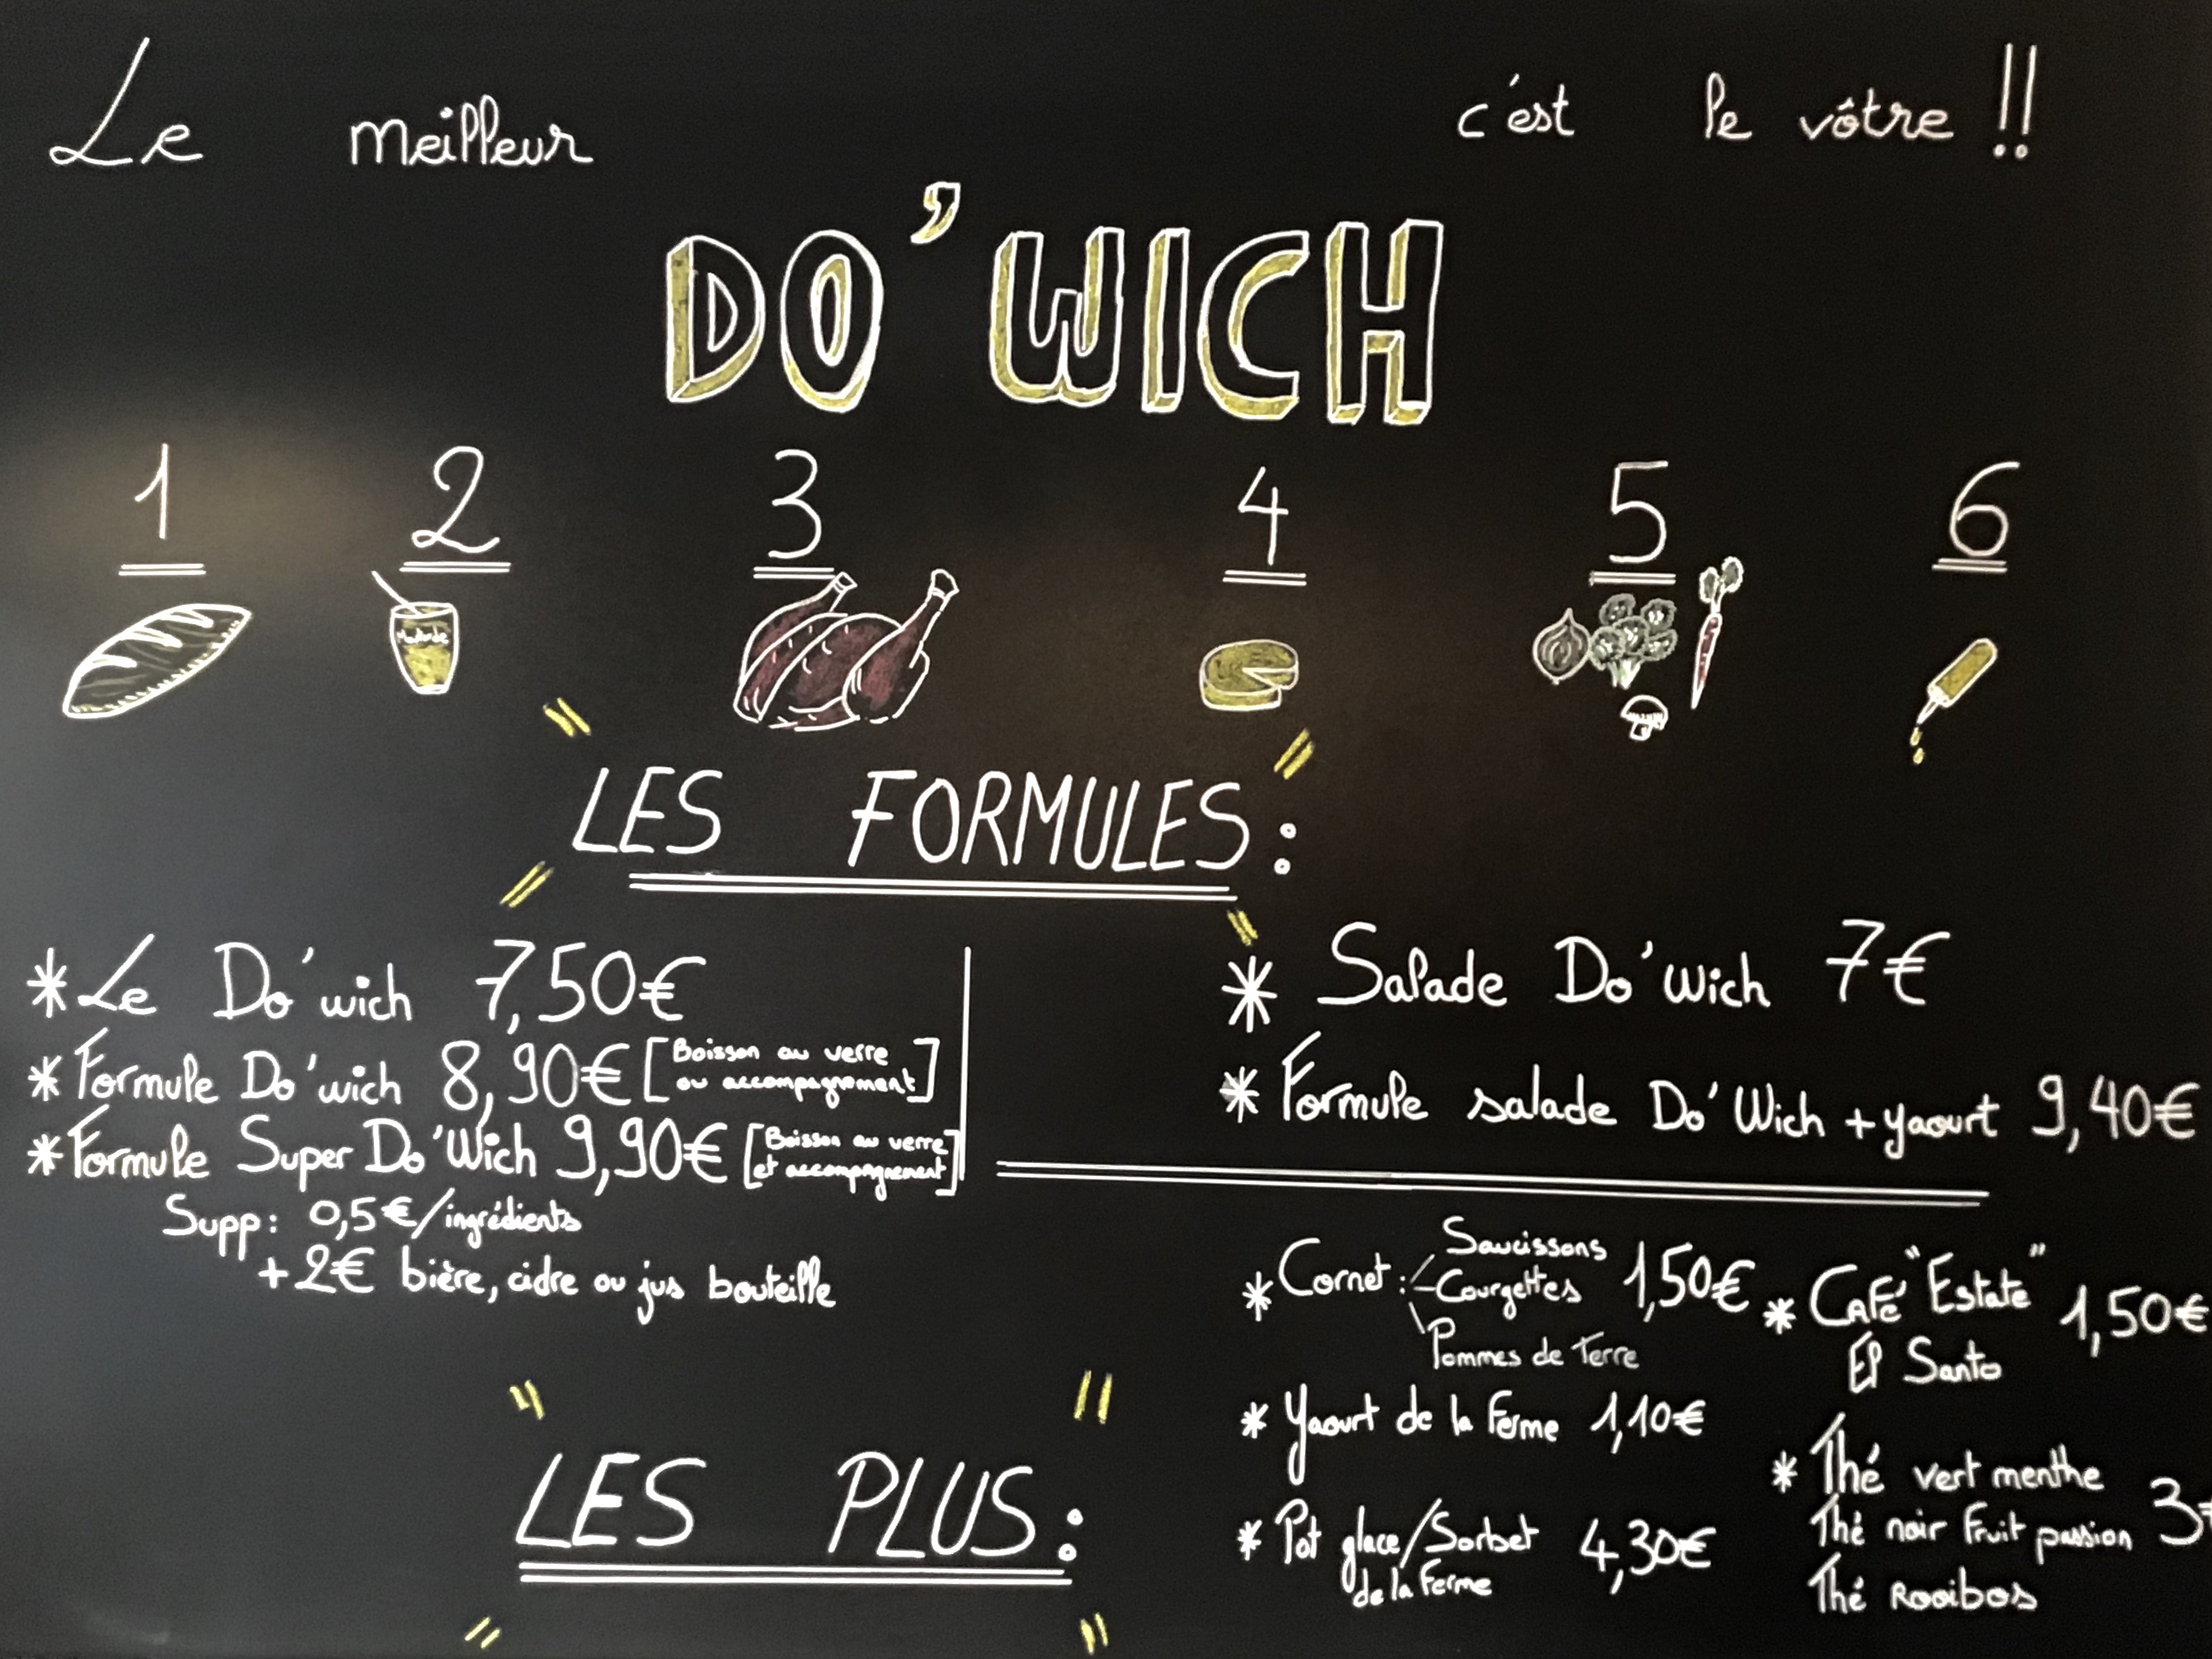 Le meilleur c'est le vôtre !!
DO'WICH
1 2 3 4 5 6
Moutarde
LES FORMULES:
*Le Do'wich 7,50€
*Formule Do'wich 8,90€ [Boisson au verre
ou accompagnement]
*Formule Super Do'Wich 9,90€ [Boisson au verre
et accompagnement]
Supp: 0,5€/ingrédients
+2€ bière, cidre ou jus bouteille
* Salade Do'Wich 7€
* Formule salade Do'Wich + yaourt 9,40€
* Cornet: Saucissons
Courgettes 1,50€
Pommes de Terre
* Yaourt de la Ferme 1,10€
* Pot glace/Sorbet 4,30€
de la Ferme
* CAFé "Estate" 1,50€
El Santo
* Thé vert menthe
Thé noir Fruit passion 3€
Thé Rooibos
LES PLUS: